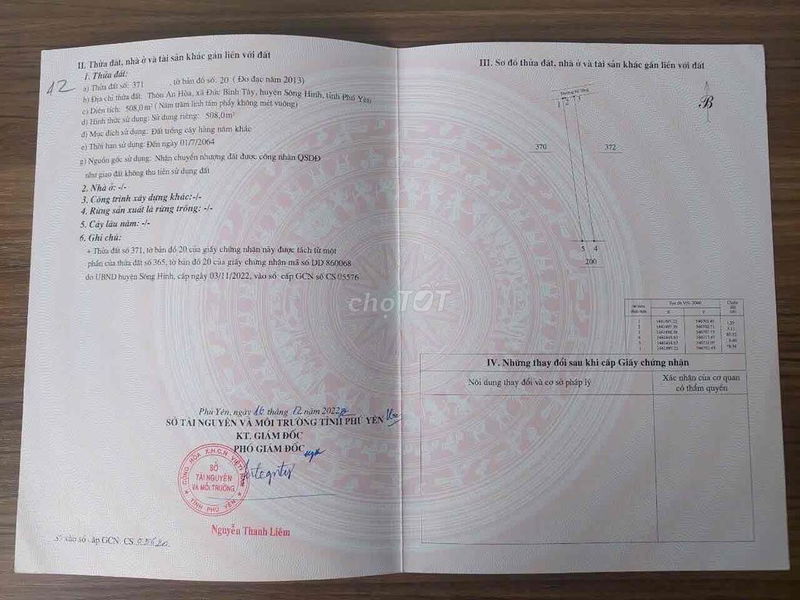 12
II. Thửa đất, nhà ở và tài sản khác gắn liền với đất
1. Thửa đất:
a) Thửa đất số: 371 tờ bản đồ số: 20 ( Đo đạc năm 2013)
b) Địa chỉ thửa đất: Thôn An Hòa, xã Đức Bình Tây, huyện Sông Hinh, tỉnh Phú Yên
c) Diện tích: 508,0m² ( Năm trăm linh tám phẩy không mét vuông)
d) Hình thức sử dụng: Sử dụng riêng: 508,0m²
đ) Mục đích sử dụng: Đất trồng cây hàng năm khác
e) Thời hạn sử dụng: Đến ngày 01/7/2064
g) Nguồn gốc sử dụng: Nhận chuyển nhượng đất được công nhận QSDĐ
như giao đất không thu tiền sử dụng đất
2. Nhà ở: -/-
3. Công trình xây dựng khác:-/-
4. Rừng sản xuất là rừng trồng: -/-
5. Cây lâu năm: -/-
6. Ghi chú:
+ Thửa đất số 371, tờ bản đồ 20 của giấy chứng nhận này được tách từ một
phần của thửa đất số 365, tờ bản đồ 20 của giấy chứng nhận mã số DD 860068
do UBND huyện Sông Hinh, cấp ngày 03/11/2022, vào sổ cấp GCN số CS 05576
Phú Yên, ngày 16 tháng 12 năm 2022
SỞ TÀI NGUYÊN VÀ MÔI TRƯỜNG TỈNH PHÚ YÊN
KT. GIÁM ĐỐC
PHÓ GIÁM ĐỐC
CỘNG HÒA X.H.C.N VIỆT NAM
SỞ
TÀI NGUYÊN
VÀ MÔI TRƯỜNG
TỈNH PHÚ YÊN
Nguyễn Thanh Liêm
Số vào sổ cấp GCN: CS
III. Sơ đồ thửa đất, nhà ở và tài sản khác gắn liền với đất
B
370
372
5 4
200
IV. Những thay đổi sau khi cấp Giấy chứng nhận
Nội dung thay đổi và cơ sở pháp lý
Xác nhận của cơ quan
có thẩm quyền
chợTỐT